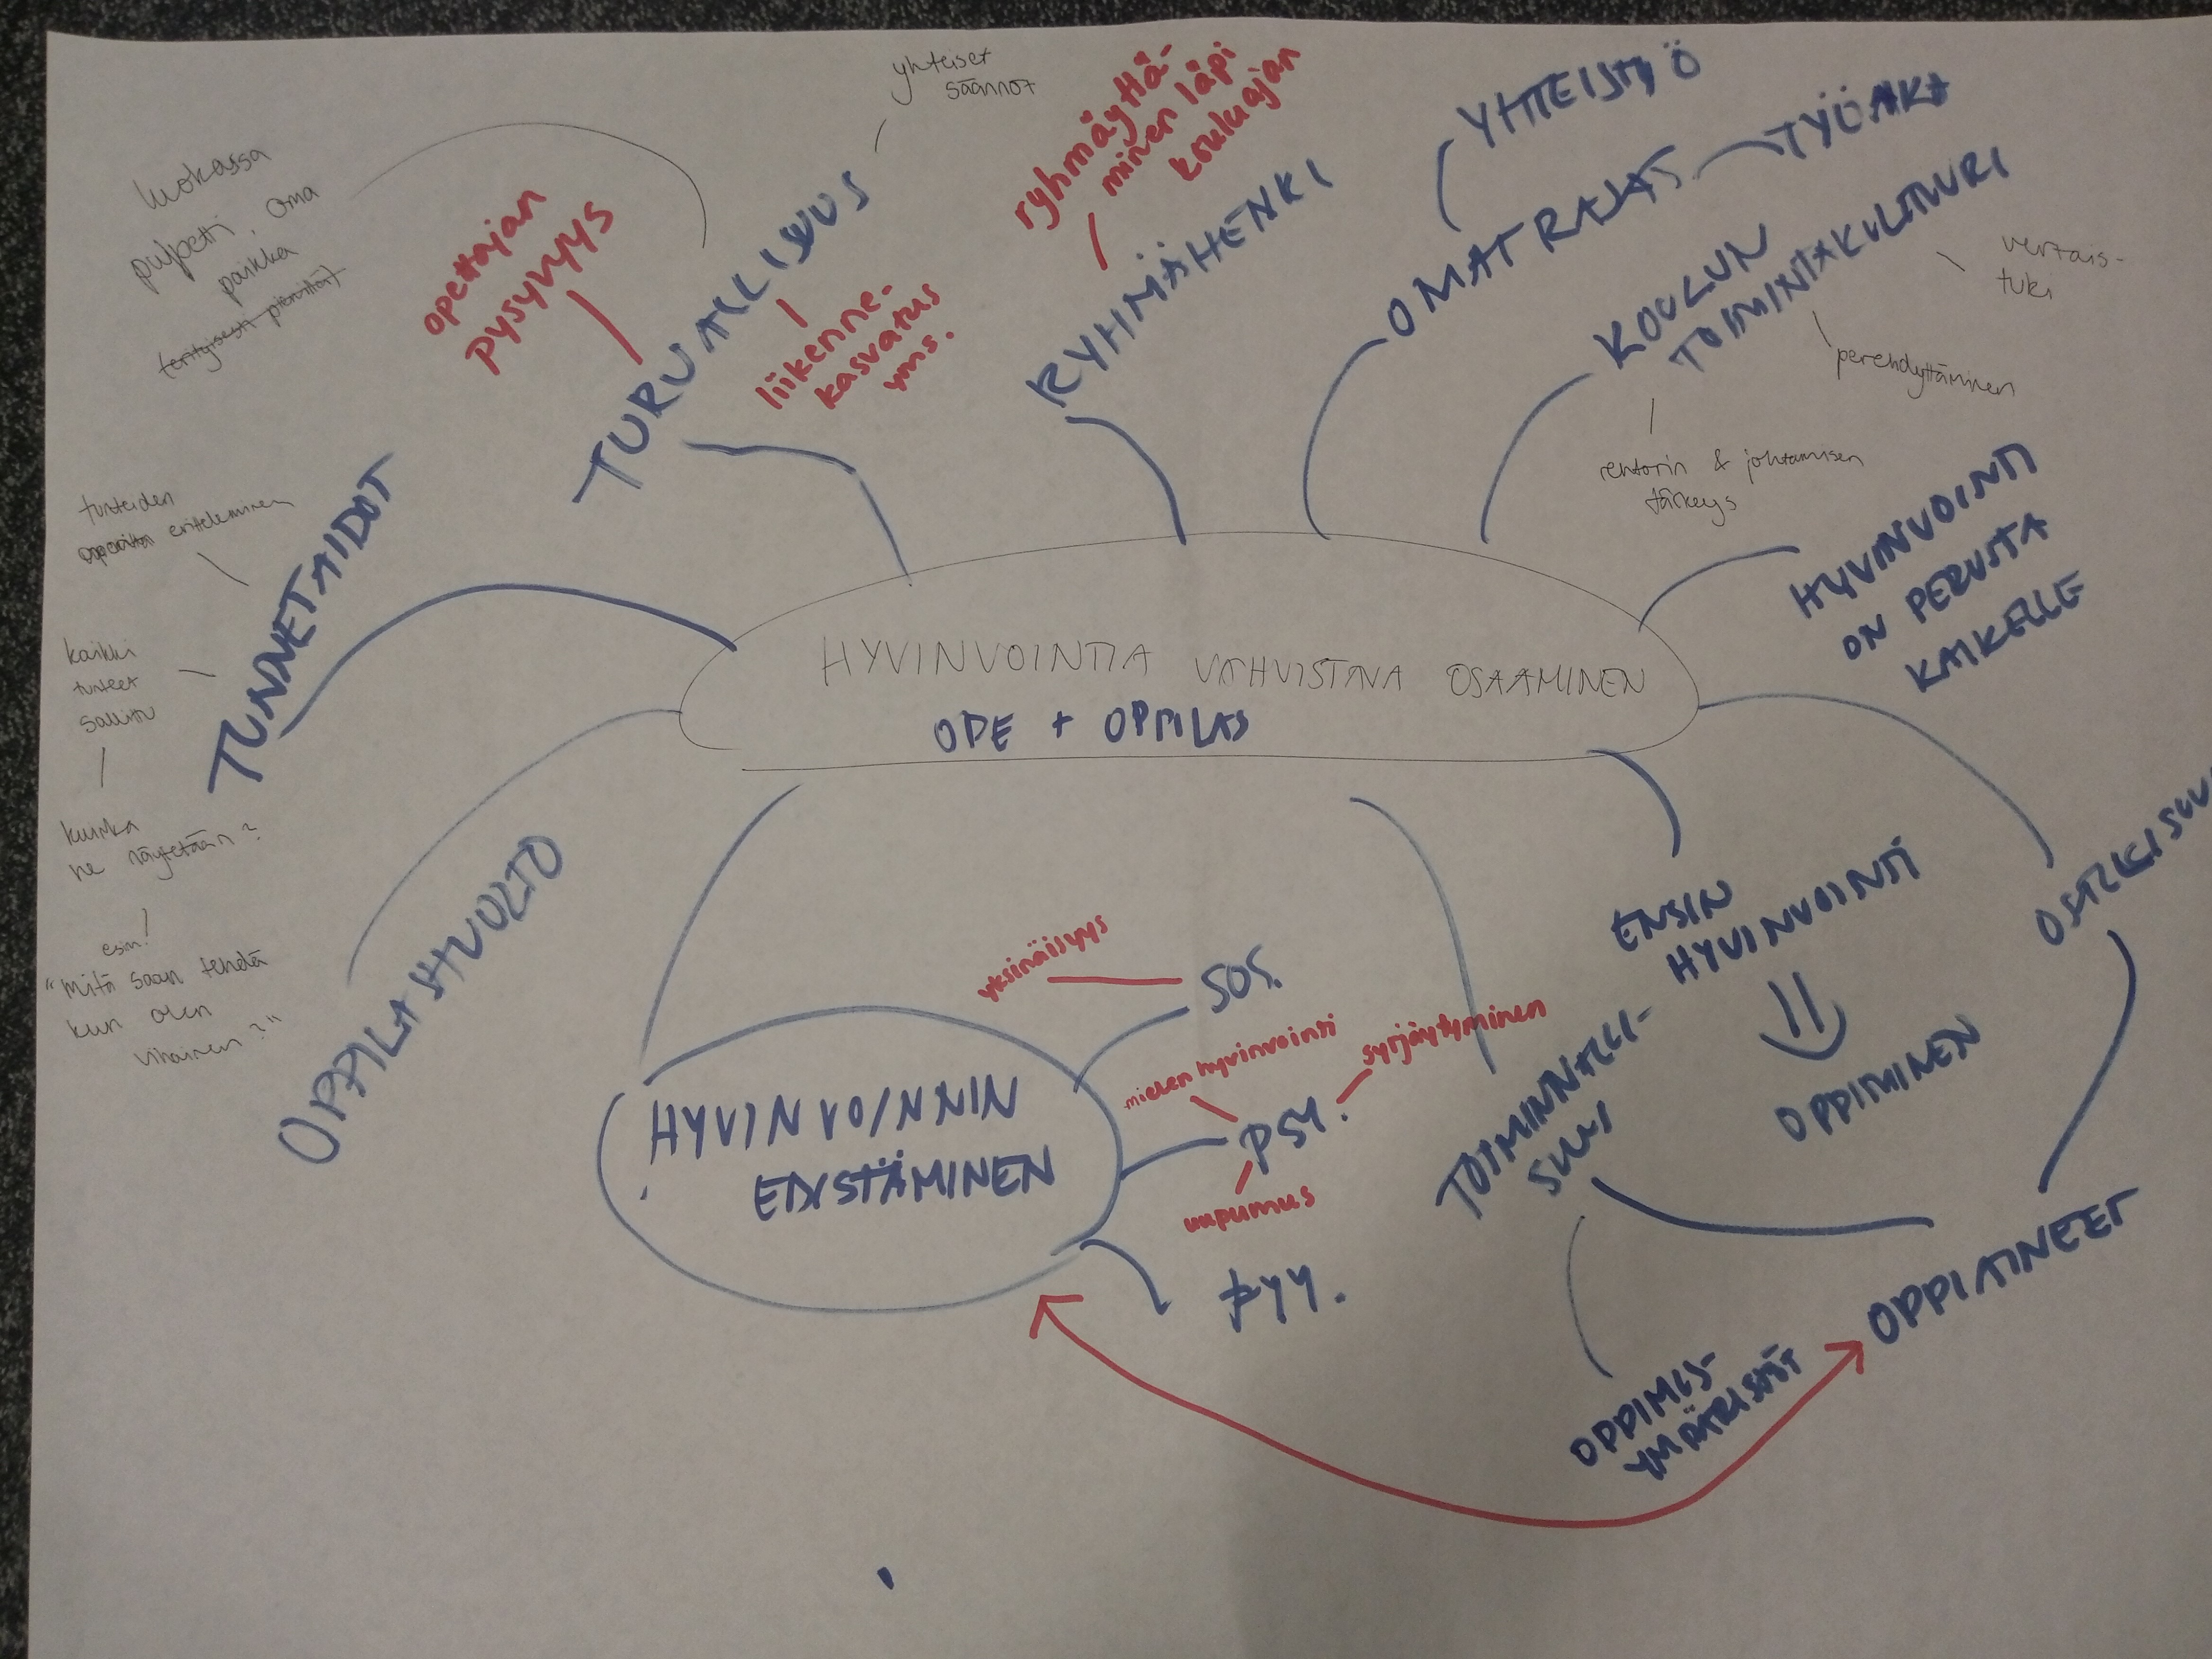 yhteiset
säännöt
ryhmäyttä-
minen läpi
kouluajan
YHTEISTYÖ
TYÖAIKA
OMAT RAJAT
luokassa
pulpetti, oma
paikka
opettajan
pysyvyys
TURVALLISUUS
liikenne-
kasvatus
yms.
RYHMÄHENKI
KOULUN
TOIMINTAKULTTUURI
vertais-
tuki
perehdyttäminen
rehtorin & johtamisen
tärkeys
HYVINVOINTI
ON PERUSTA
KAIKELLE
tunteiden
eritteleminen
TUNNETAIDOT
kaikki
tunteet
sallittu
kuinka
ne näytetään?
esim!
"mitä saan tehdä
kun olen
vihainen?"
HYVINVOINTIA VAHVISTAVA OSAAMINEN
OPE + OPPILAS
OPPILASHUOLTO
HYVINVOINNIN
EDISTÄMINEN
yksinäisyys
SOS.
mielen hyvinvointi
syrjäytyminen
PSY.
uupumus
FYY.
ENSIN
HYVINVOINTI
OPPIMINEN
OSALLISUU
TOIMINNALLI-
SUUS
OPPIAINEET
OPPIMIS-
YMPÄRISTÖT